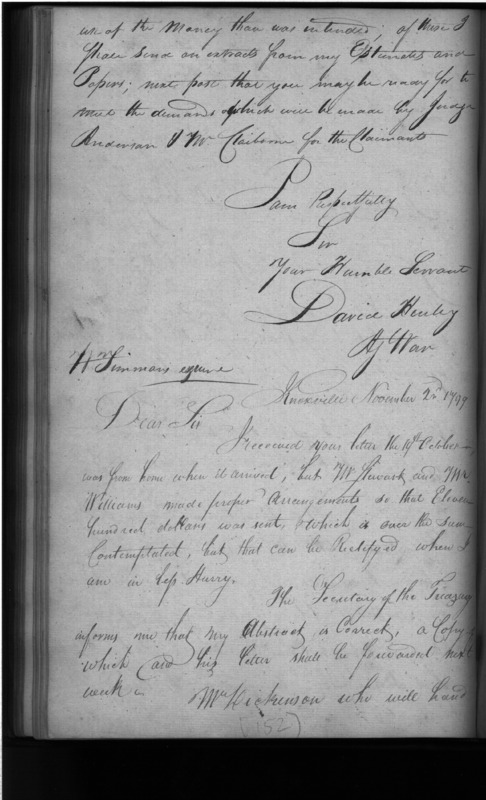 use of the Money than was intended; of these I
shall send an extracts from my Estimates and
Papers; next post that you may be ready for to
meet the demands which will be made by Judge
Anderson & Mr Claiborne for the Claimants
I am Respectfully
Sir
Your Humble Servant
David Henley
Ag War
Wm Simmons esquire
Knoxville November 2nd 1799
Dear Sir
I received your letter the 19th October
was from home when it arrived, but W Stewart and Mr
Williams made proper arrangements so that Eleven
hundred dollars was sent, which is over the sum
Contemplated, but that can be Rectifyed when I
am in less Hurry.
The Secretary of the Treasury
informs me that my Abstract is Correct, a Copy of
which and his letter shall be forwarded next
week
Mr Dickenson who will hand
(152)